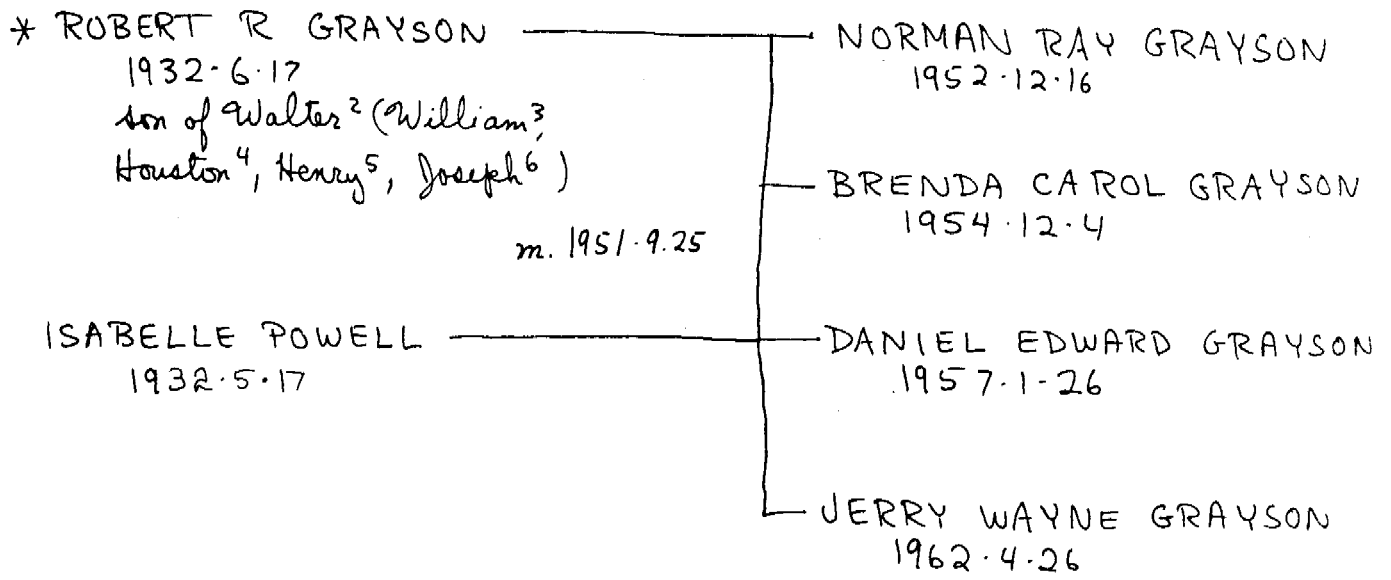 * ROBERT R GRAYSON
1932·6·17
son of Walter² (William³,
Houston⁴, Henry⁵, Joseph⁶)
m. 1951·9.25
ISABELLE POWELL
1932·5·17
NORMAN RAY GRAYSON
1952·12·16
BRENDA CAROL GRAYSON
1954·12·4
DANIEL EDWARD GRAYSON
1957·1-26
JERRY WAYNE GRAYSON
1962·4·26